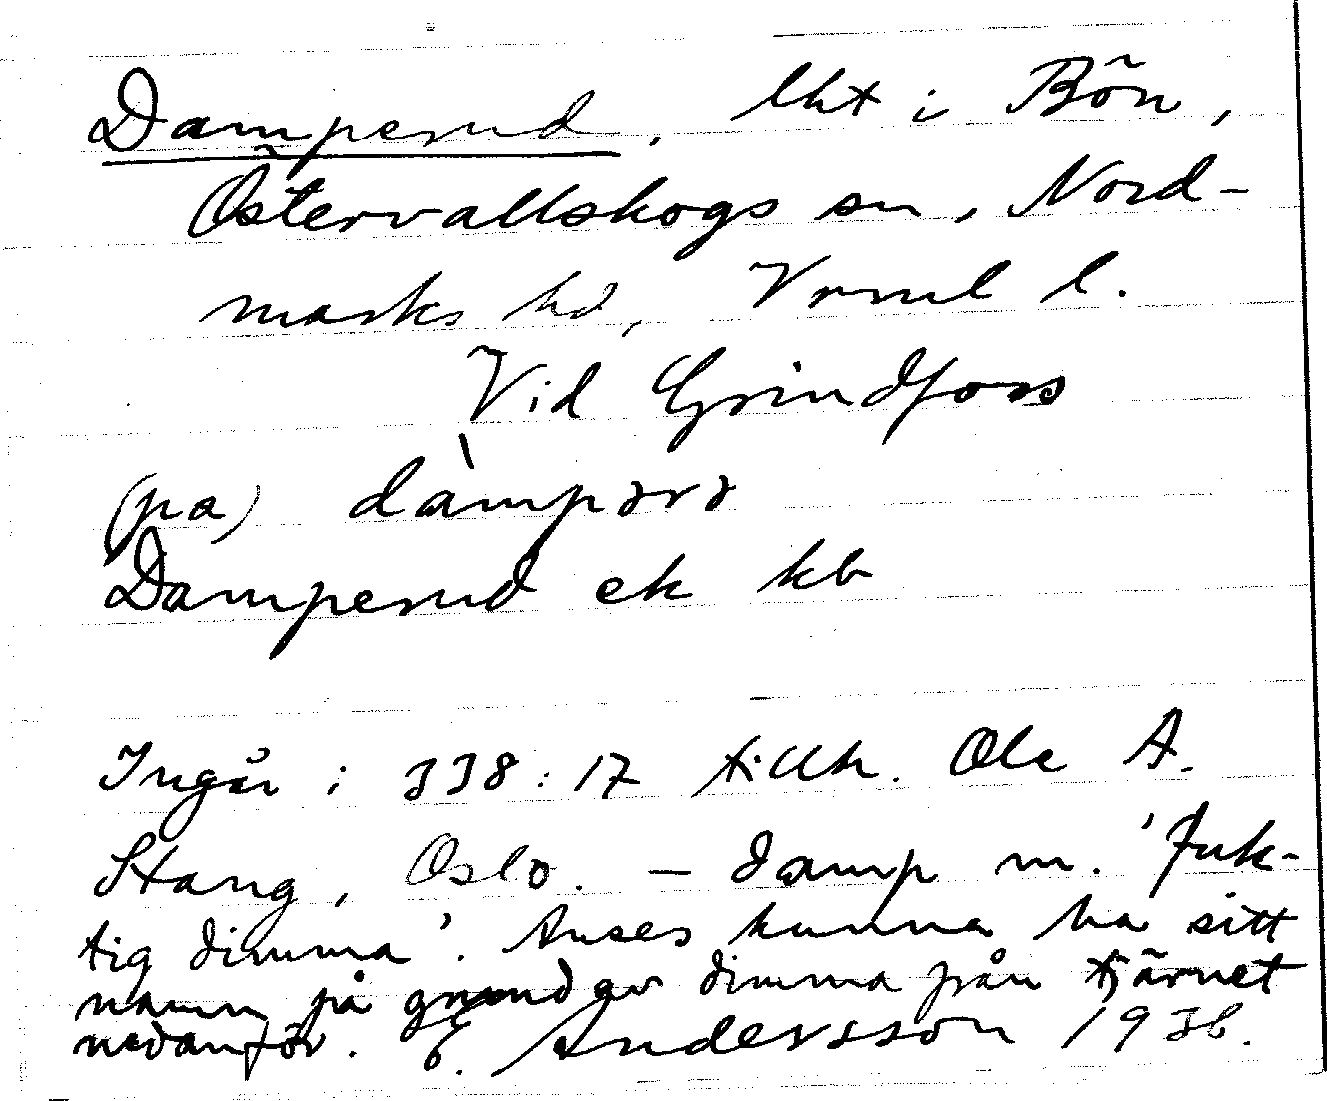 Damperud, lht i Bön,
Östervallskogs sn, Nord-
marks hd, Vrml l.
Vid Grindfoss
(pa) dàmpərə
Damperud ek kb
Ingår i 338:17 tillh. Ole A.
Stang, Oslo. – damp m. 'fuk-
tig dimma'. Anses kunna ha sitt
namn på grund av dimma från tjärnet
nedanför. E. Andersson 1936.